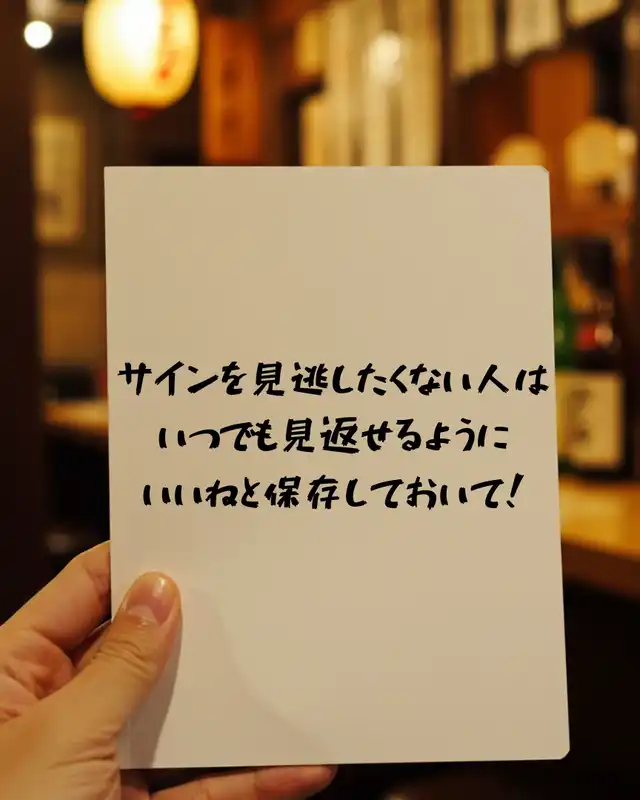 サインを見逃したくない人は
いつでも見返せるように
いいねと保存しておいて！